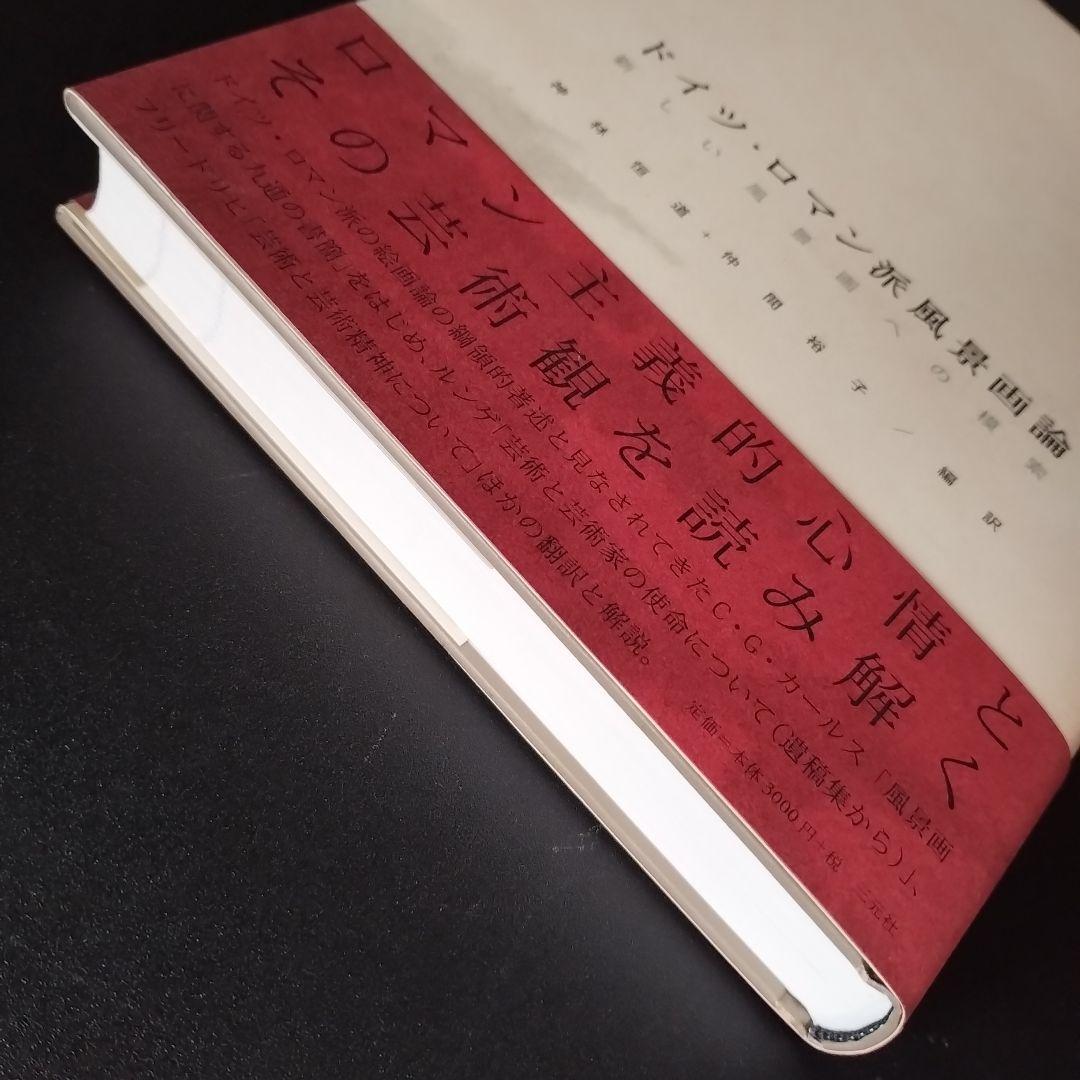 ドイツ・ロマン派風景画論
新しい風景画への模索
神林恒道+仲間裕子/編訳
ロマン主義的心情と
その芸術観を読み解く
ドイツ・ロマン派の絵画論の綱領的著述と見なされてきたC・G・カールス「風景画
に関する九通の書簡」をはじめ、ルンゲ「芸術と芸術家の使命について(遺稿集から)」、
フリードリヒ「芸術と芸術精神について」ほかの翻訳と解説。
定価=本体3000円+税 三元社